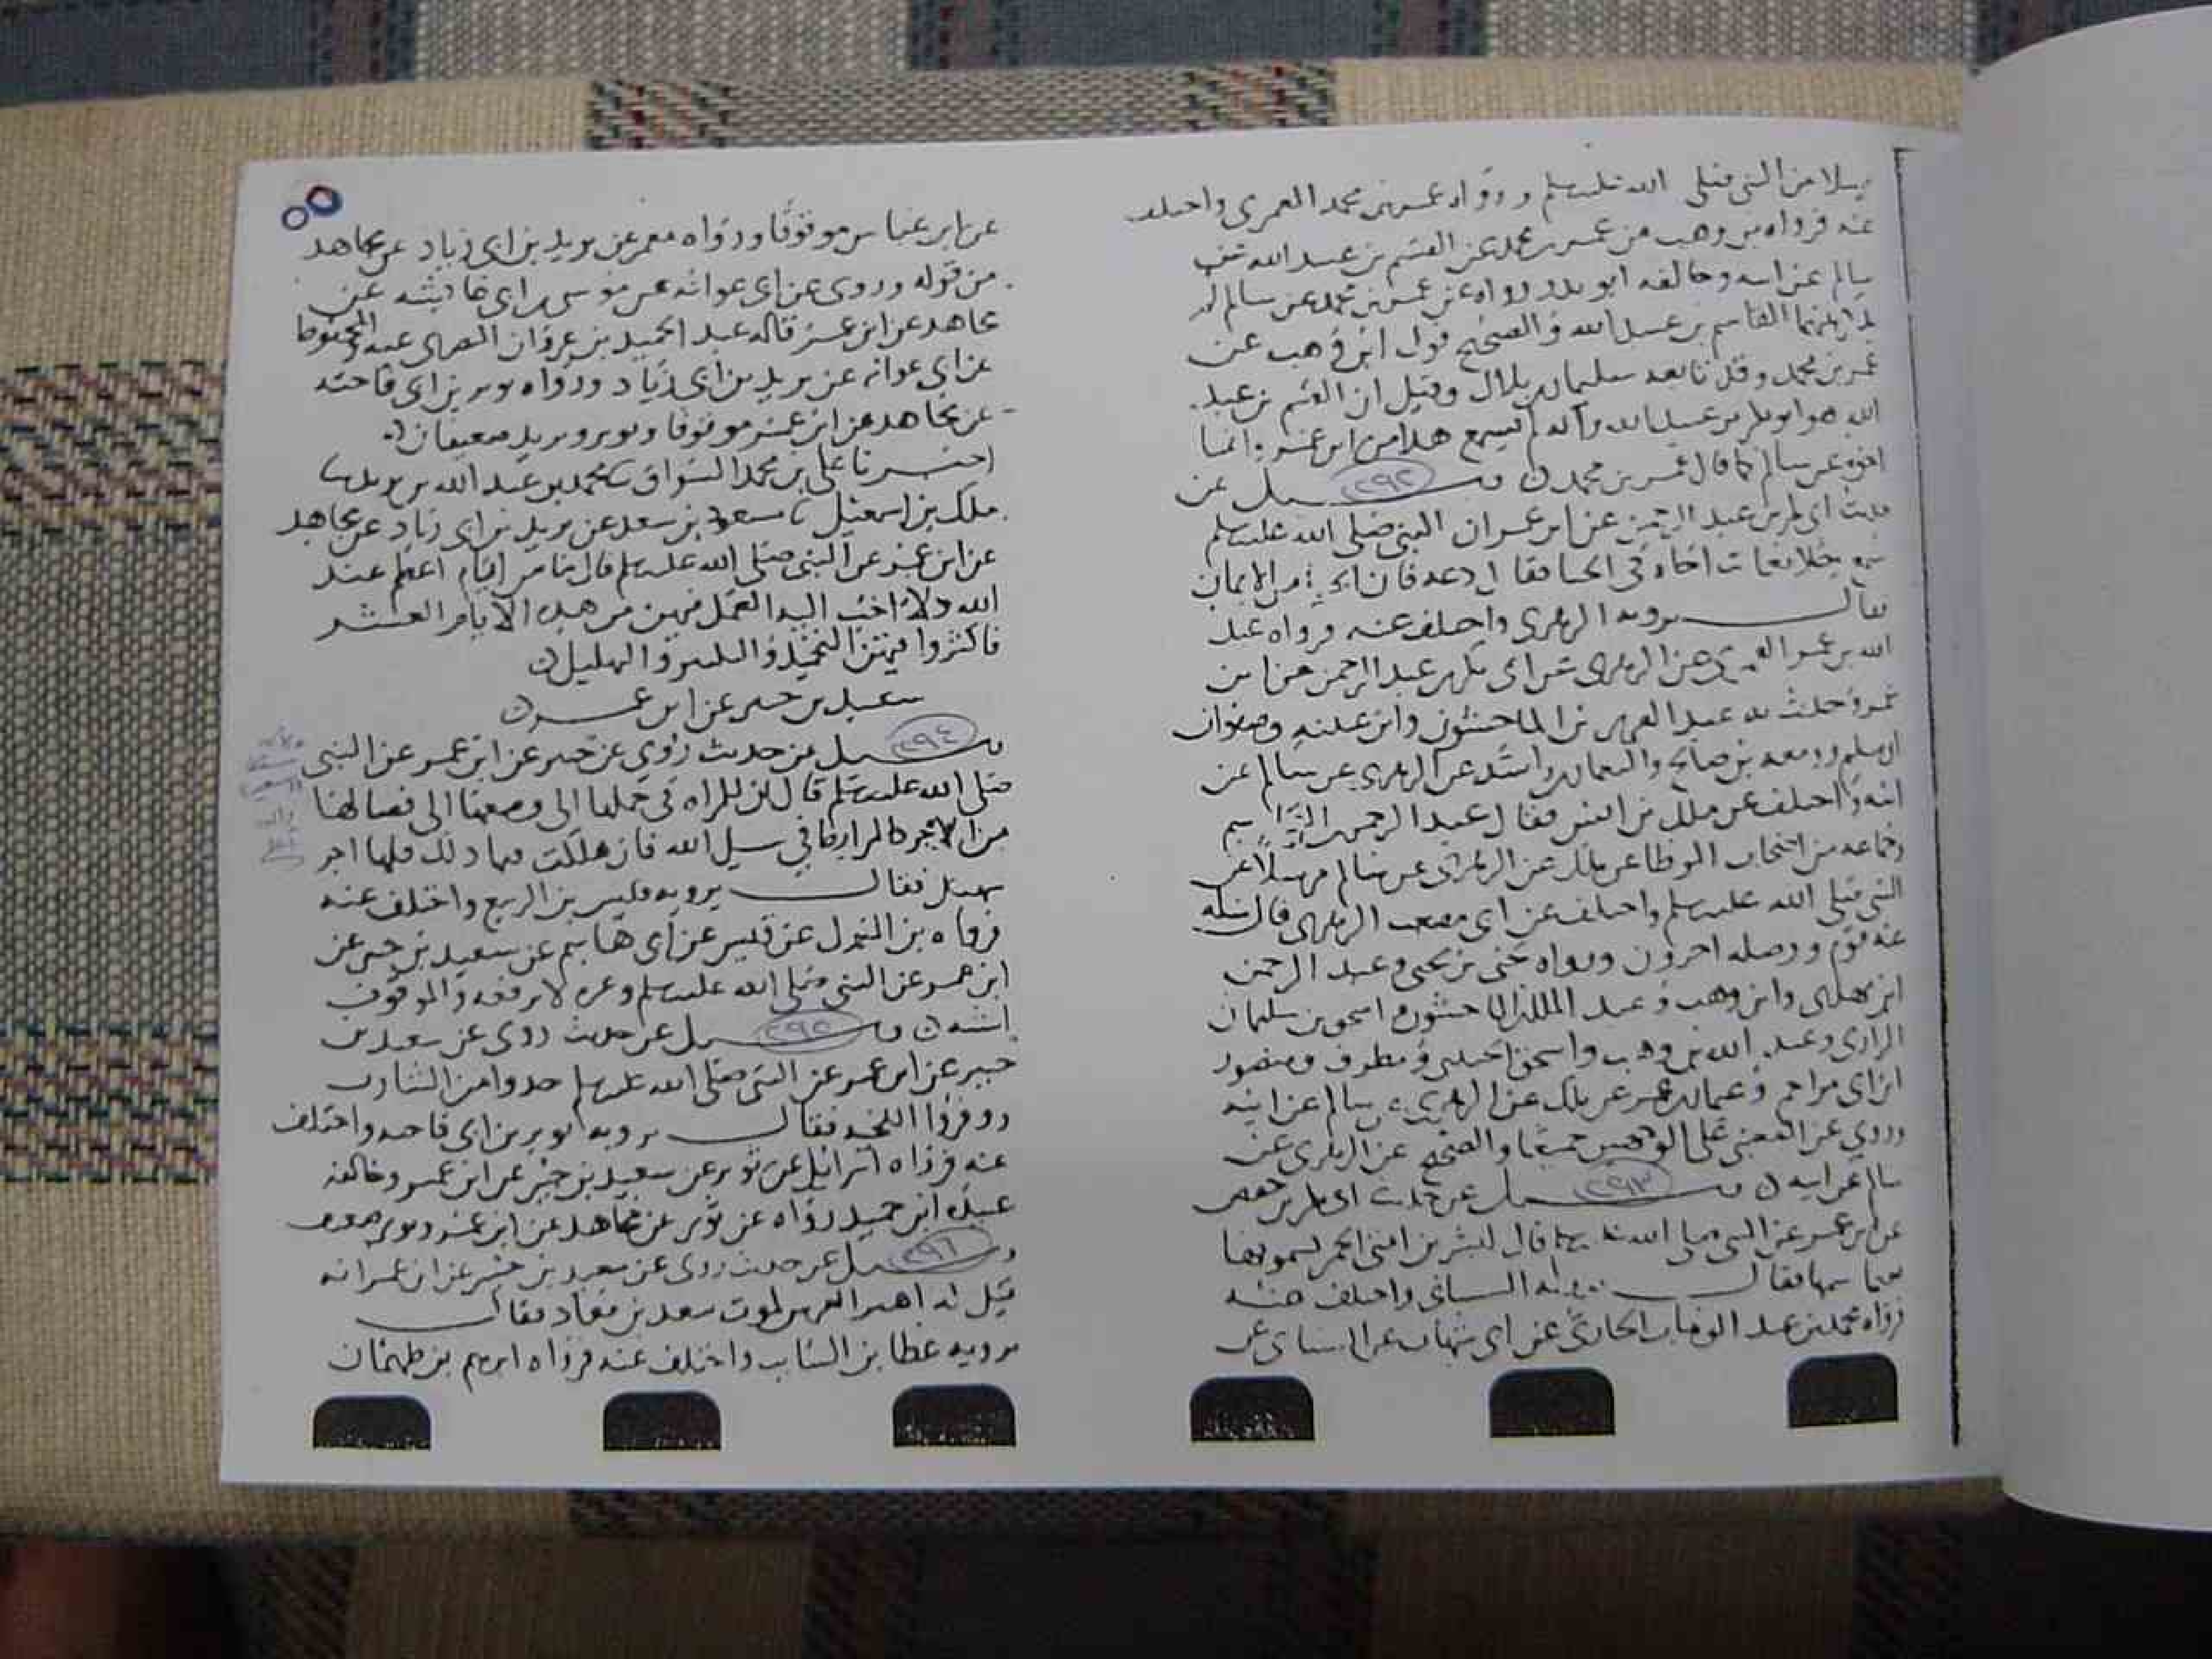 مرسلا عن النبي صلى الله عليه وسلم ورواه عمر بن محمد العمري واختلف
عنه فرواه بن وهب عن عمر بن محمد عن القسم بن عبيد الله عن
سالم عن ابيه وخالفه ابو بدر رواه عن عمر بن محمد عن سالم لم
يذكر بينهما القاسم بن عبيد الله والصحيح قول ابن وهب عن
عمر بن محمد وقد تابعه سليمان بلال وقيل ان القسم بن عبيد
الله هو ابو بكر بن عبيد الله وانه لم يسمع هذا من ابن عمر انما
اخذه عن سالم كما قال عمر بن محمد ن وسيل عن
٢٩٢
حديث ابي بكر بن عبد الرحمن عن ابن عمر ان النبي صلى الله عليه وسلم
سمع رجلا يعاتب اخاه في الحيا فقال دعه فان الحيا من الايمان
فقال يرويه الزهري واختلف عنه فرواه عبد
الله بن عمر العمري عن الزهري عن ابي بكر بن عبد الرحمن عن ابن
عمر وحدث به عبد العزيز بن الماجشون وابن عيينه وصفوان
بن سليم ومعمر بن صالح والنعمان راشد عن الزهري عن سالم عن
ابيه واختلف عن ملك بن انس فقال عبد الرحمن القاسم
وجماعه من اصحاب الموطا عن ملك عن الزهري عن سالم مرسلا عن
النبي صلى الله عليه وسلم واختلف عن ابي مصعب الزهري فارسله
عنه قوم ووصله اخرون ورواه يحيى بن يحيى وعبد الرحمن
ابن مهدي وابن وهب وعبد الملك الماجشون واسحق بن سليمان
الرازي وعبد الله بن وهب واسحق الحنيني ومطرف ومنصور
ابن ابي مزاحم وعثمان بن عمر عن ملك عن الزهري عن سالم عن ابيه
وروي عن القعنبي على الوجهين جميعا والصحيح عن الزهري عن
سالم عن ابيه ن وسيل عن حديث ابي بكر بن حفص
٢٩٣
عن ابن عمر عن النبي صلى الله عليه وسلم قال ليشربن امتي الخمر يسمونها
بغير اسمها فقال يرويه الشيباني واختلف عنه
فرواه محمد بن عبد الوهاب الحارثي عن ابي شهاب عن الشيباني عن
٥٥
عن ابن عباس موقوفا ورواه معمر عن يزيد بن ابي زياد عن مجاهد
من قوله وروي عن ابي عوانه عن موسى بن ابي عايشه عن
مجاهد عن ابن عمر قاله عبد الحميد بن غزوان البصري عنه والمحفوظ
عن ابي عوانه عن يزيد بن ابي زياد ورواه ثوير بن ابي فاخته
عن مجاهد عن ابن عمر موقوفا وثوير ويزيد ضعيفان ن
اخبرنا علي بن محمد السواق نا محمد بن عبد الله بن نا
ملك بن اسمعيل نا مسعود بن سعد عن يزيد بن ابي زياد عن مجاهد
عن ابن عمر عن النبي صلى الله عليه وسلم قال ما من ايام اعظم عند
الله ولا احب اليه العمل فيهن من هذه الايام العشر
فاكثروا فيهن التحميد والتكبير والتهليل ن
سعيد بن جبير عن ابن عمر ن
وسيل عن حديث روي عن جبير عن ابن عمر عن النبي
٢٩٤
صلى الله عليه وسلم قال ان للمراه في حملها الى وضعها الى فصالها
من الاجر كالمرابط في سبيل الله فان هلكت فيما ذلك فلها اجر
شهيد فقال يرويه قيس بن الربيع واختلف عنه
فرواه بن عن قيس عن ابي هاشم عن سعيد بن جبير عن
ابن عمر عن النبي صلى الله عليه وسلم وغيره لا يرفعه والموقوف
اشبه ن وسيل عن حديث روي عن سعيد بن
٢٩٥
جبير عن ابن عمر عن النبي صلى الله عليه وسلم خذوا من الشارب
ووفروا اللحيه فقال يرويه ثوير بن ابي فاخته واختلف
عنه فرواه اسرائيل عن ثوير عن سعيد بن جبير عن ابن عمر وخالفه
عبيده ابن حميد رواه عن ثوير عن مجاهد عن ابن عمر وثوير ضعيف
وسيل عن حديث روي عن سعيد بن جبير عن ابن عمر انه
٢٩٦
قيل له اهتز العرش لموت سعد بن معاذ فقال
يرويه عطا بن السايب واختلف عنه فرواه ابرهيم بن طهمان